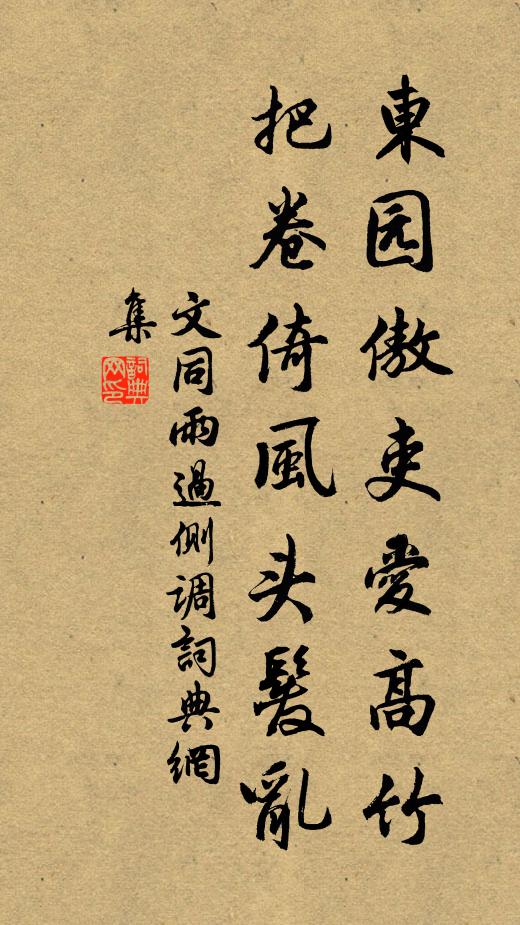 東园傲吏愛高竹
把卷倚風头髮亂
文同雨過側调詞典網
集
詞典网印